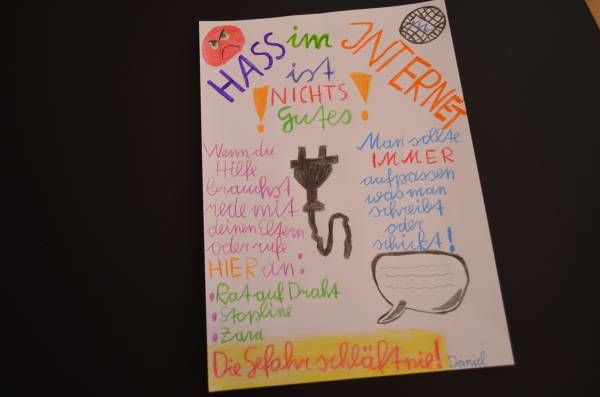 HASS im INTERNET
ist
! NICHTS !
Gutes
Wenn du
Hilfe
brauchst
rede mit
deinen Eltern
oder rufe
HIER an:
• Rat auf Draht
• Stopline
• Zara
Man sollte
IMMER
aufpassen
was man
schreibt
oder
schickt!
Die Gefahr schläft nie!
Daniel